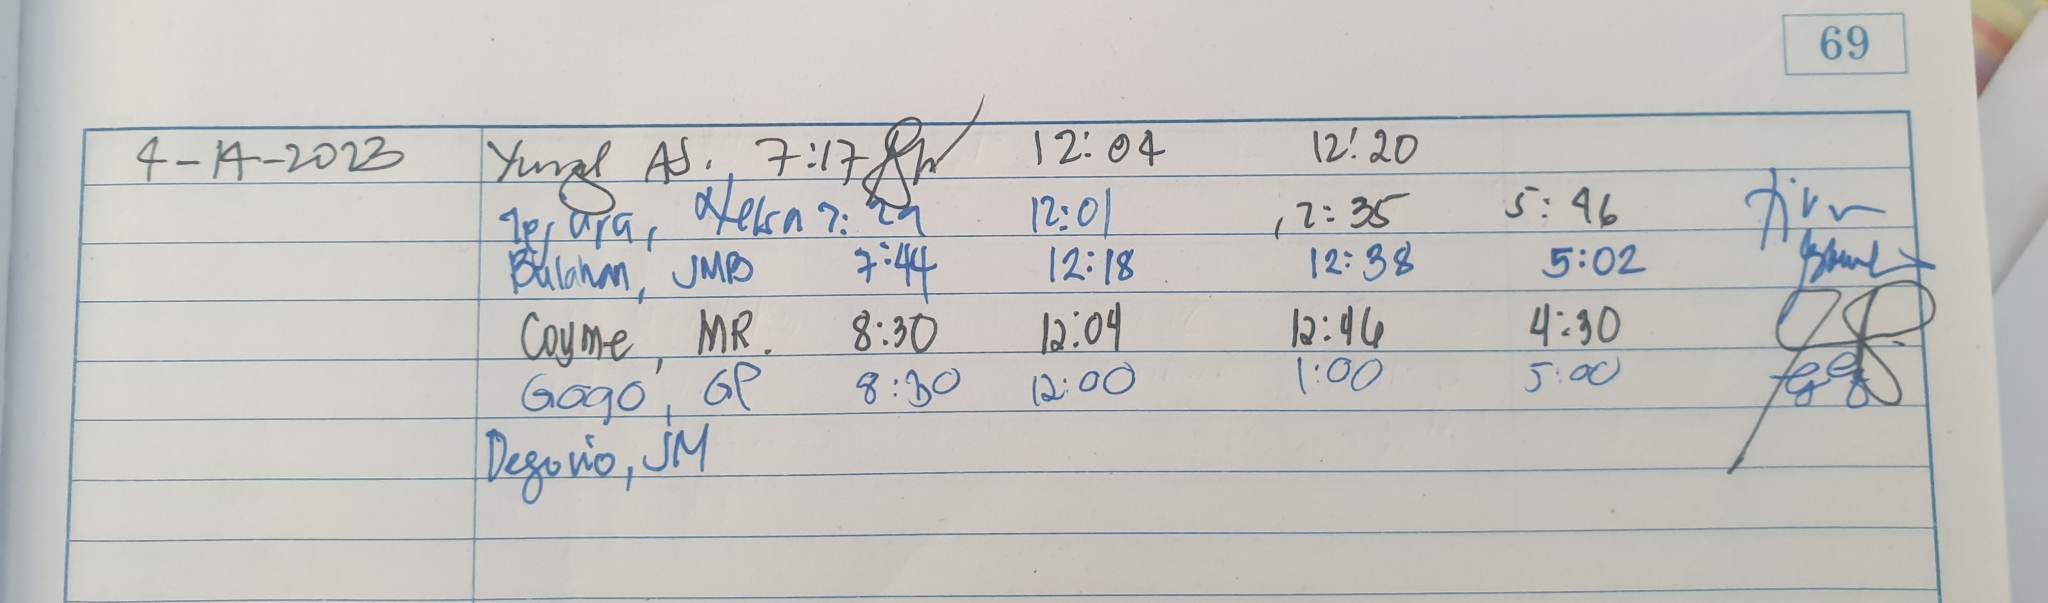 69
4-14-2023 AS. 7:17 12:04 12:20
7:29 12:01 12:35 5:46
Bulahan, JMB 7:44 12:18 12:38 5:02
Coyme, MR. 8:30 12:04 12:46 4:30
Gogo, GP 8:30 12:00 1:00 5:00
Degorio, JM